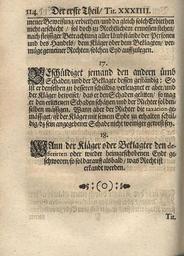 114. Der erste Theil/ Tit. XXXIIII.
meiner Beweisung erbiethen/ und da gleich solch Erbiethen
nicht geschehe / so sol der Richter
nach fleissiger Betrachtung aller Umbstände der Personen
und des Handels / dem Kläger oder dem Beklagten/ ver-
müge gemeiner Rechten/ solchen Eyd aufflegen.
17.
BEschüldiget jemand den andern umb
Schaden/ und der Beklagte dessen geständig: So
ist er denselben zu
der Kläger beweist/ das er den Schaden gelitten/ so mag
er den erlittenen Schaden schätzen und der Richter soll den
selben mässigen. Wann aber der Richter die taxation ge-
mässiget/ so ist der Kläger nicht mehr den Eyd zu erhalten schül-
dig/ das sein angegebener Schade nicht weniger gewesen sey.
18.
WAnn der Kläger oder Beklagter den de-
ferirten oder wieder heimgeschobenen Eydt ge-
schworen/ so sol darauff alsbald / was Recht ist
erkant werden.
Tit.